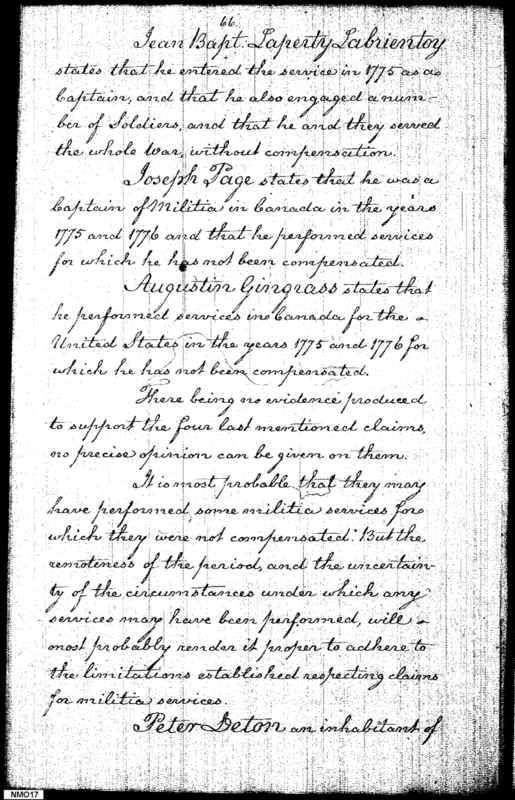 66.
Jean Bapt. Laperty Labrientoy
states that he entered the service in 1775 as a
Captain, and that he also engaged a num-
ber of Soldiers, and that he and they served
the whole War, without compensation.
Joseph Page states that he was a
Captain of Militia in Canada in the years
1775 and 1776 and that he performed services
for which he has not been compensated.
Augustin Gingrass states that
he performed services in Canada for the
United States in the years 1775 and 1776 for
which he has not been compensated.
There being no evidence produced
to support the four last mentioned claims,
no precise opinion can be given on them.
It is most probable that they may
have performed some militia services for
which they were not compensated. But the
remoteness of the period, and the uncertain-
ty of the circumstances under which any
services may have been performed, will
most probably render it proper to adhere to
the limitations established respecting claims
for militia services.
Peter Deton an inhabitant of
NMO17